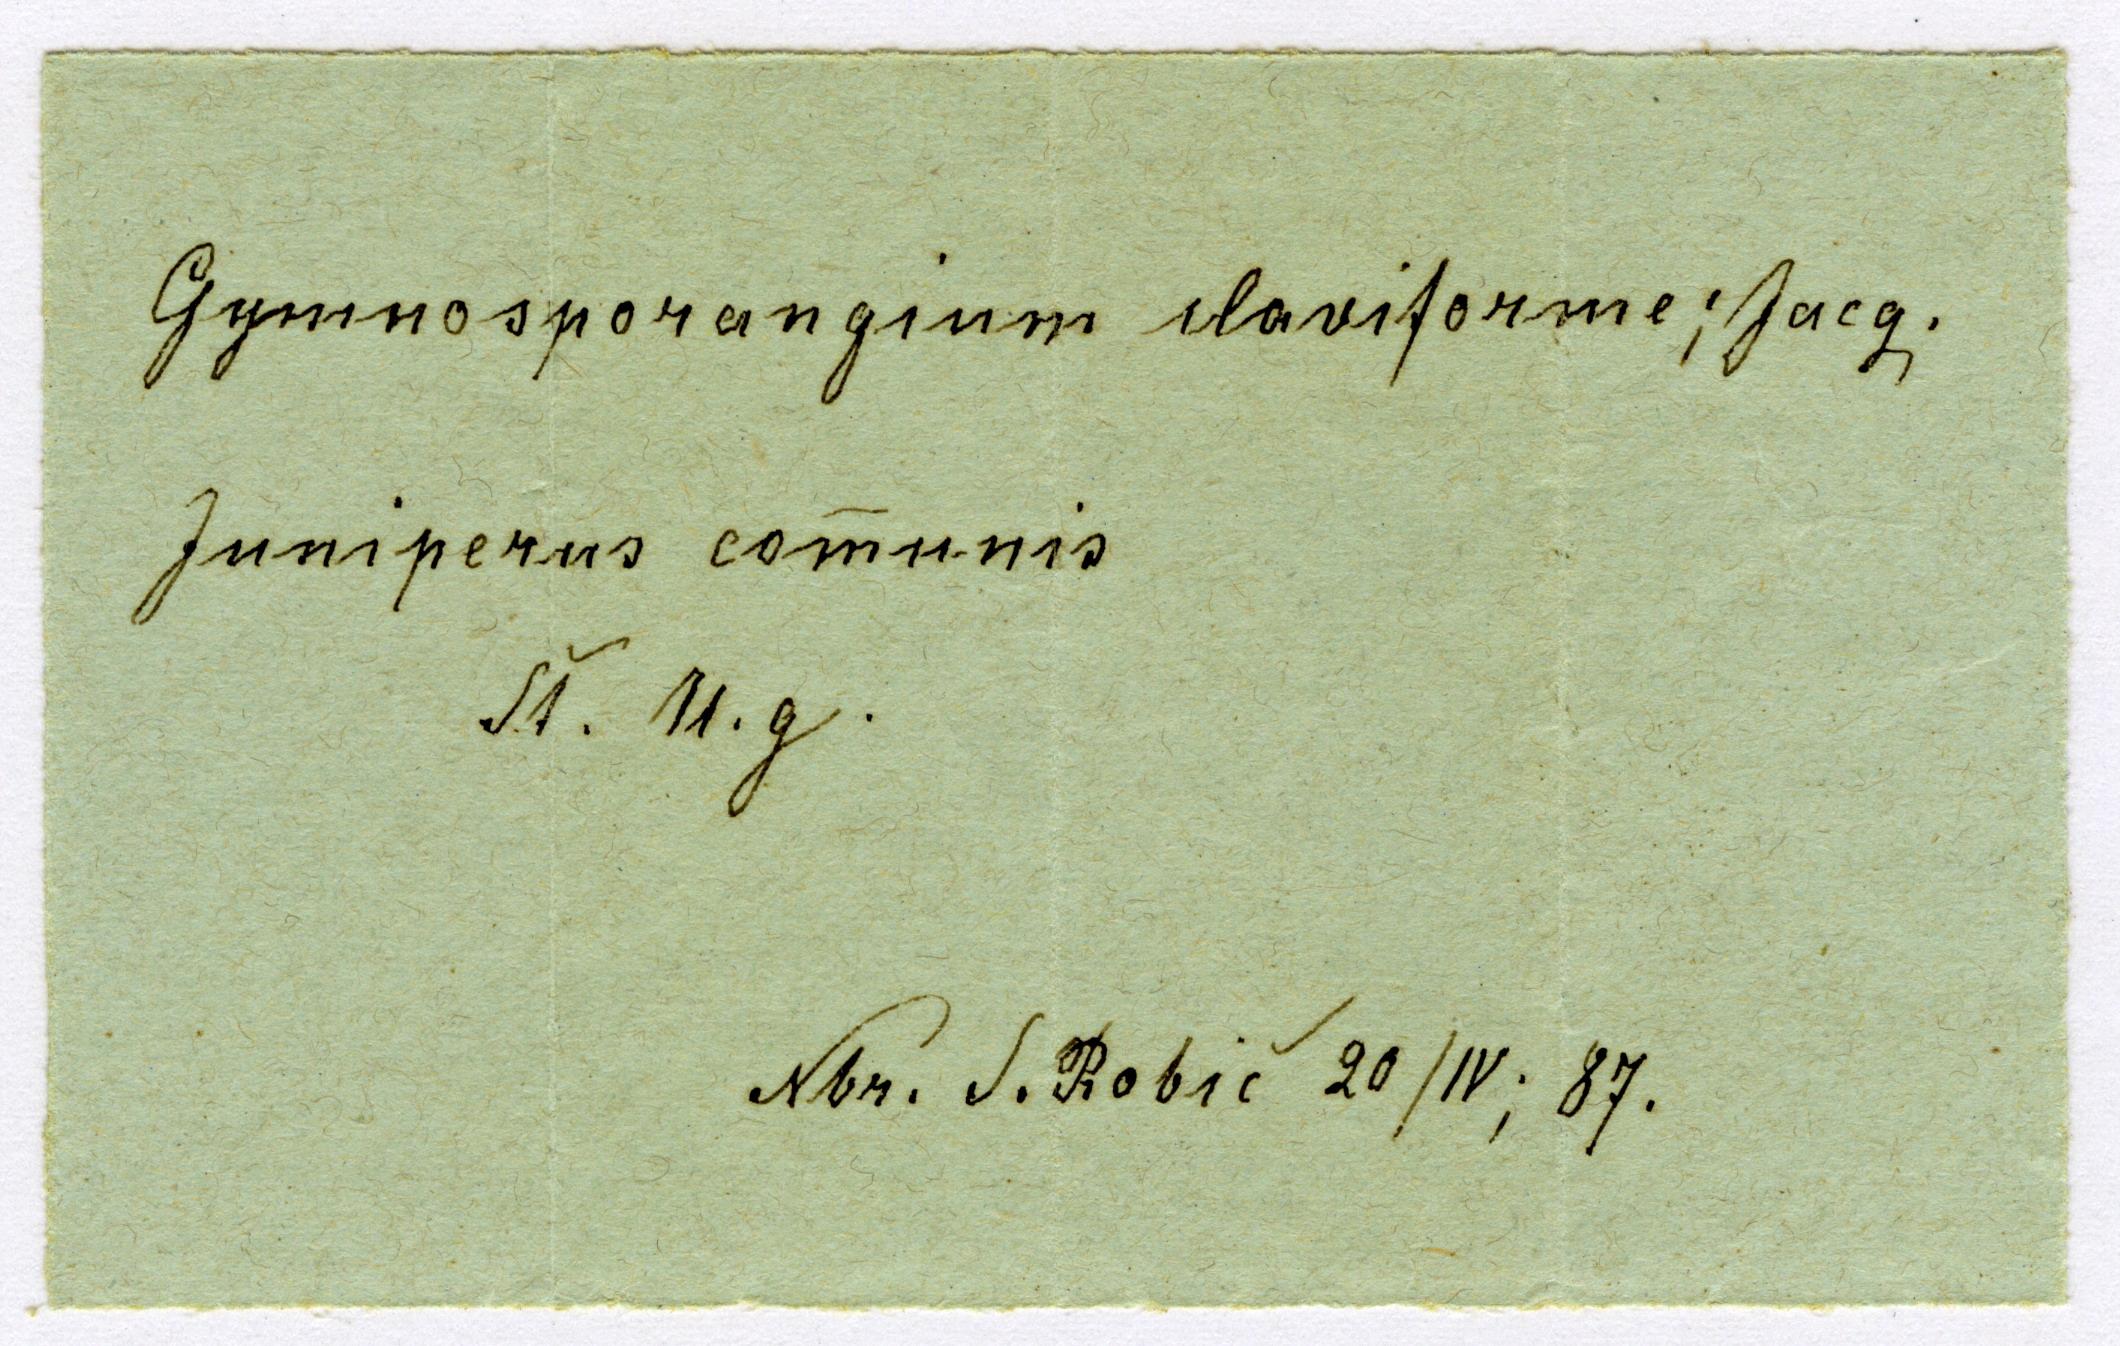 Gymnosporangium claviforme; Jacq.
Juniperus com̄unis
Šť. U. g.
Nbr. S. Robič 20/IV; 87.